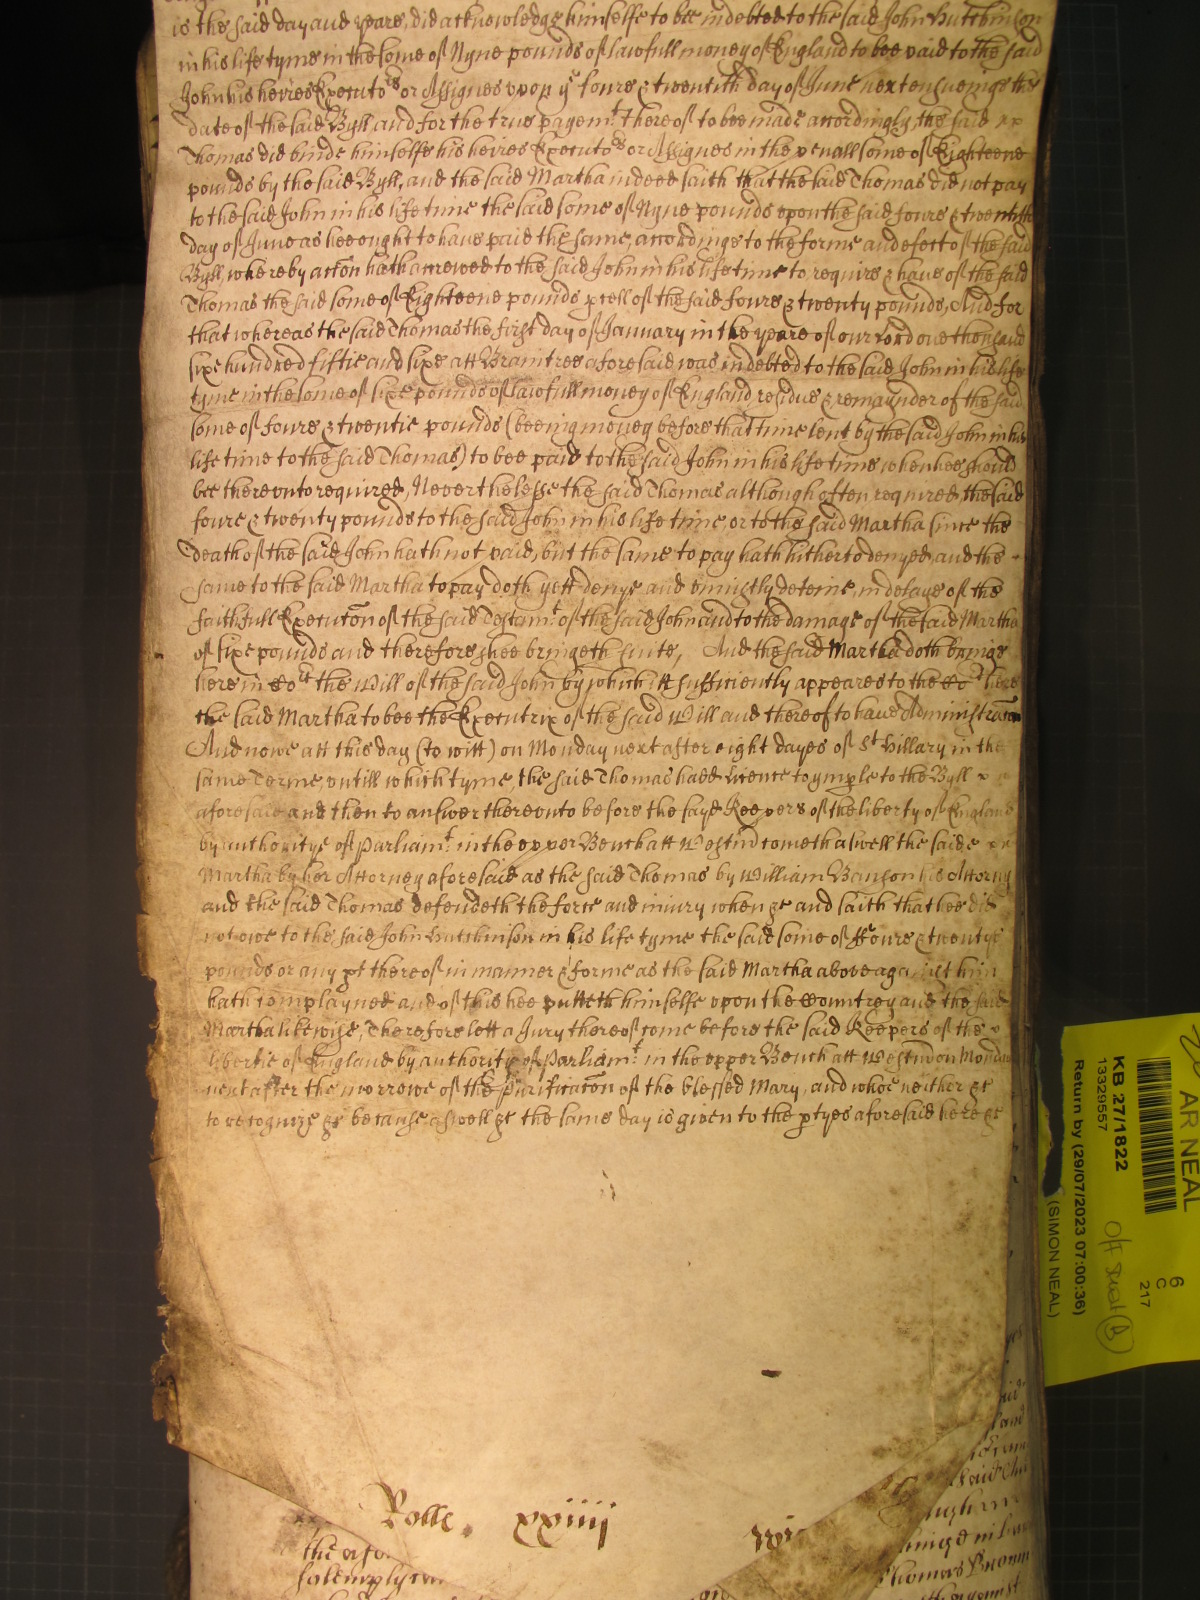 is the said day and yeare, did acknowledge himselfe to bee indebted to the said John Hutchinson
in his life tyme in the some of Nyne pounds of lawfull money of England to bee paid to the said
John his heires Executors or Assignes upon ye foure & twentith day of June next ensueinge the
date of the said Byll, and for the true paymt thereof to bee made accordingly, the said
Thomas did binde himselfe his heires Executors or Assignes in the penall some of Eighteene
pounds by the said Byll, and the said Martha indeed saith that the said Thomas did not pay
to the said John in his life time the said some of Nyne pounds upon the said foure & twentith
day of June as hee ought to have paid the same, accordinge to the forme and efect of the said
Byll, whereby accon hath accrewed to the said John in his life time to require & have of the said
Thomas the said some of Eighteene pounds pcell of the said foure & twenty pounds, And for
that whereas the said Thomas the first day of January in the yeare of our Lord one thousand
sixe hundred fiftie and sixe att Braintree aforesaid was indebted to the said John in his life
tyme in the some of sixe pounds of lawfull money of England residue & remaynder of the said
some of foure & twentie pounds (beeing money before that time lent by the said John in his
life time to the said Thomas) to bee paid to the said John in his life time when hee should
bee thereunto required, Neverthelesse the said Thomas although often required the said
foure & twenty pounds to the said John in his life time or to the said Martha since the
death of the said John hath not paid, but the same to pay hath hitherto denyed and the
same to the said Martha to pay doth yett denye and uniustly deteine, in delaye of the
faithfull Executon of the said Testamt of the said John and to the damage of the said Martha
of sixe pounds and therefore shee bringeth suite, And the said Martha doth bringe
here in Cort the Will of the said John by which itt sufficiently appeares to the Cort here
the said Martha to bee the Executrix of the said Will and thereof to have Administracon
And nowe att this day (to witt) on Monday next after eight dayes of St Hillary in the
same Terme, untill which tyme, the said Thomas hadd licence to ymple to the Byll
aforesaid and then to answer thereunto before the sayd Keepers of the liberty of England
by authoritye of Parliamt in the upper Bench att Westm cometh aswell the saide
Martha by her Attorney aforesaid as the said Thomas by William Benson his Attorny
and the said Thomas defendeth the force and iniury when &c and saith that hee did
not owe to the said John Hutchinson in his life tyme the said some of ffoure & twentye
pounds or any pt thereof in manner & forme as the said Martha above against him
hath complayned and of this hee putteth himselfe upon the Countrey and the said
Martha likewise, Therefore lett a Jury thereof come before the said Keepers of the
libertie of England by authority of Parliamt in the upper Bench att Westm on Monday
next after the morrowe of the Purificacon of the blessed Mary, and whoe neither &c
to recognize &c because aswell &c the same day is given to the ptyes aforesaid here &c
Rolle. xxiiij
the afo
solemply
AR NEAL
6
C
217
KB 27/1822
13329557
Return by (29/07/2023 07:00:36)
(SIMON NEAL)